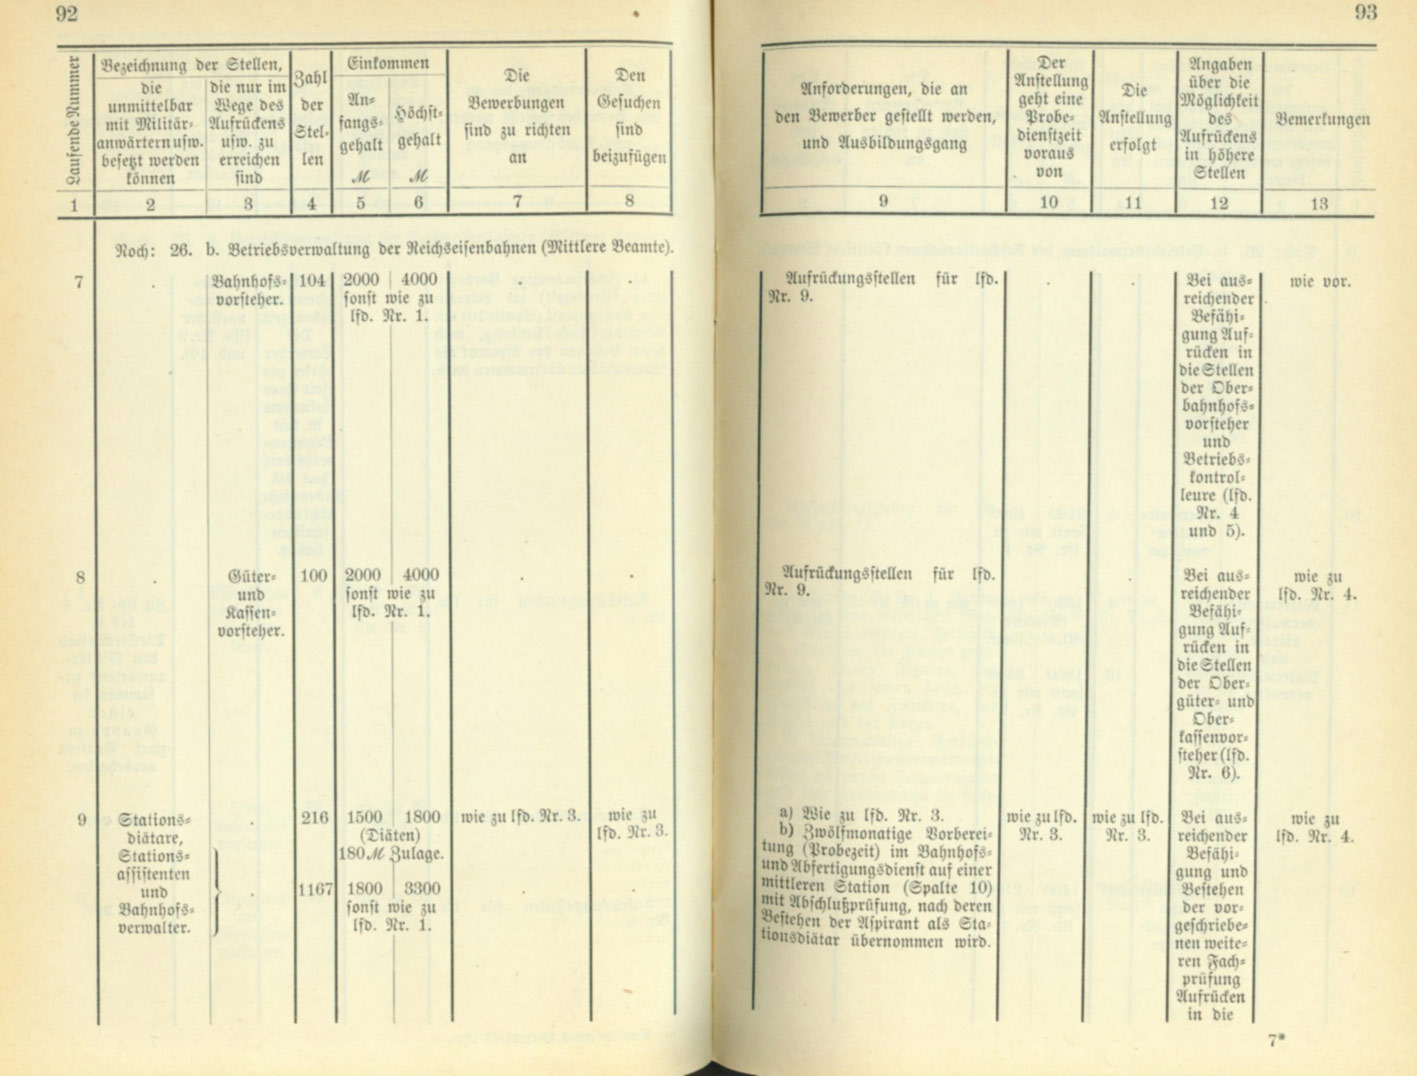 92
Laufende Nummer
Bezeichnung der Stellen,
die
unmittelbar
mit Militär-
anwärtern usw.
besetzt werden
können
die nur im
Wege des
Aufrückens
usw. zu
erreichen
sind
Zahl
der
Stel-
len
Einkommen
An-
fangs-
gehalt
ℳ
Höchst-
gehalt
ℳ
Die
Bewerbungen
sind zu richten
an
Den
Gesuchen
sind
beizufügen
1 2 3 4 5 6 7 8
Noch: 26. b. Betriebsverwaltung der Reichseisenbahnen (Mittlere Beamte).
7
.
Bahnhofs-
vorsteher.
104
2000 4000
sonst wie zu
lfd. Nr. 1.
.
.
8
.
Güter-
und
Kassen-
vorsteher.
100
2000 4000
sonst wie zu
lfd. Nr. 1.
.
.
9
Stations-
diätare,
Stations-
assistenten
und
Bahnhofs-
verwalter.
.
.
216
1500 1800
(Diäten)
180 ℳ Zulage.
1167
1800 3300
sonst wie zu
lfd. Nr. 1.
wie zu lfd. Nr. 3.
.
wie zu
lfd. Nr. 3.
.
93
Anforderungen, die an
den Bewerber gestellt werden,
und Ausbildungsgang
Der
Anstellung
geht eine
Probe-
dienstzeit
voraus
von
Die
Anstellung
erfolgt
Angaben
über die
Möglichkeit
des
Aufrückens
in höhere
Stellen
Bemerkungen
9 10 11 12 13
Aufrückungsstellen für lfd.
Nr. 9.
.
.
Bei aus-
reichender
Befähi-
gung Auf-
rücken in
die Stellen
der Ober-
bahnhofs-
vorsteher
und
Betriebs-
kontrol-
leure (lfd.
Nr. 4
und 5).
wie vor.
Aufrückungsstellen für lfd.
Nr. 9.
.
.
Bei aus-
reichender
Befähi-
gung Auf-
rücken in
die Stellen
der Ober-
güter- und
Ober-
kassenvor-
steher (lfd.
Nr. 6).
wie zu
lfd. Nr. 4.
a) Wie zu lfd. Nr. 3.
b) Zwölfmonatige Vorberei-
tung (Probezeit) im Bahnhofs-
und Abfertigungsdienst auf einer
mittleren Station (Spalte 10)
mit Abschlußprüfung, nach deren
Bestehen der Aspirant als Sta-
tionsdiätar übernommen wird.
wie zu lfd.
Nr. 3.
wie zu lfd.
Nr. 3.
Bei aus-
reichender
Befähi-
gung und
Bestehen
der vor-
geschriebe-
nen weite-
ren Fach-
prüfung
Aufrücken
in die
wie zu
lfd. Nr. 4.
7*